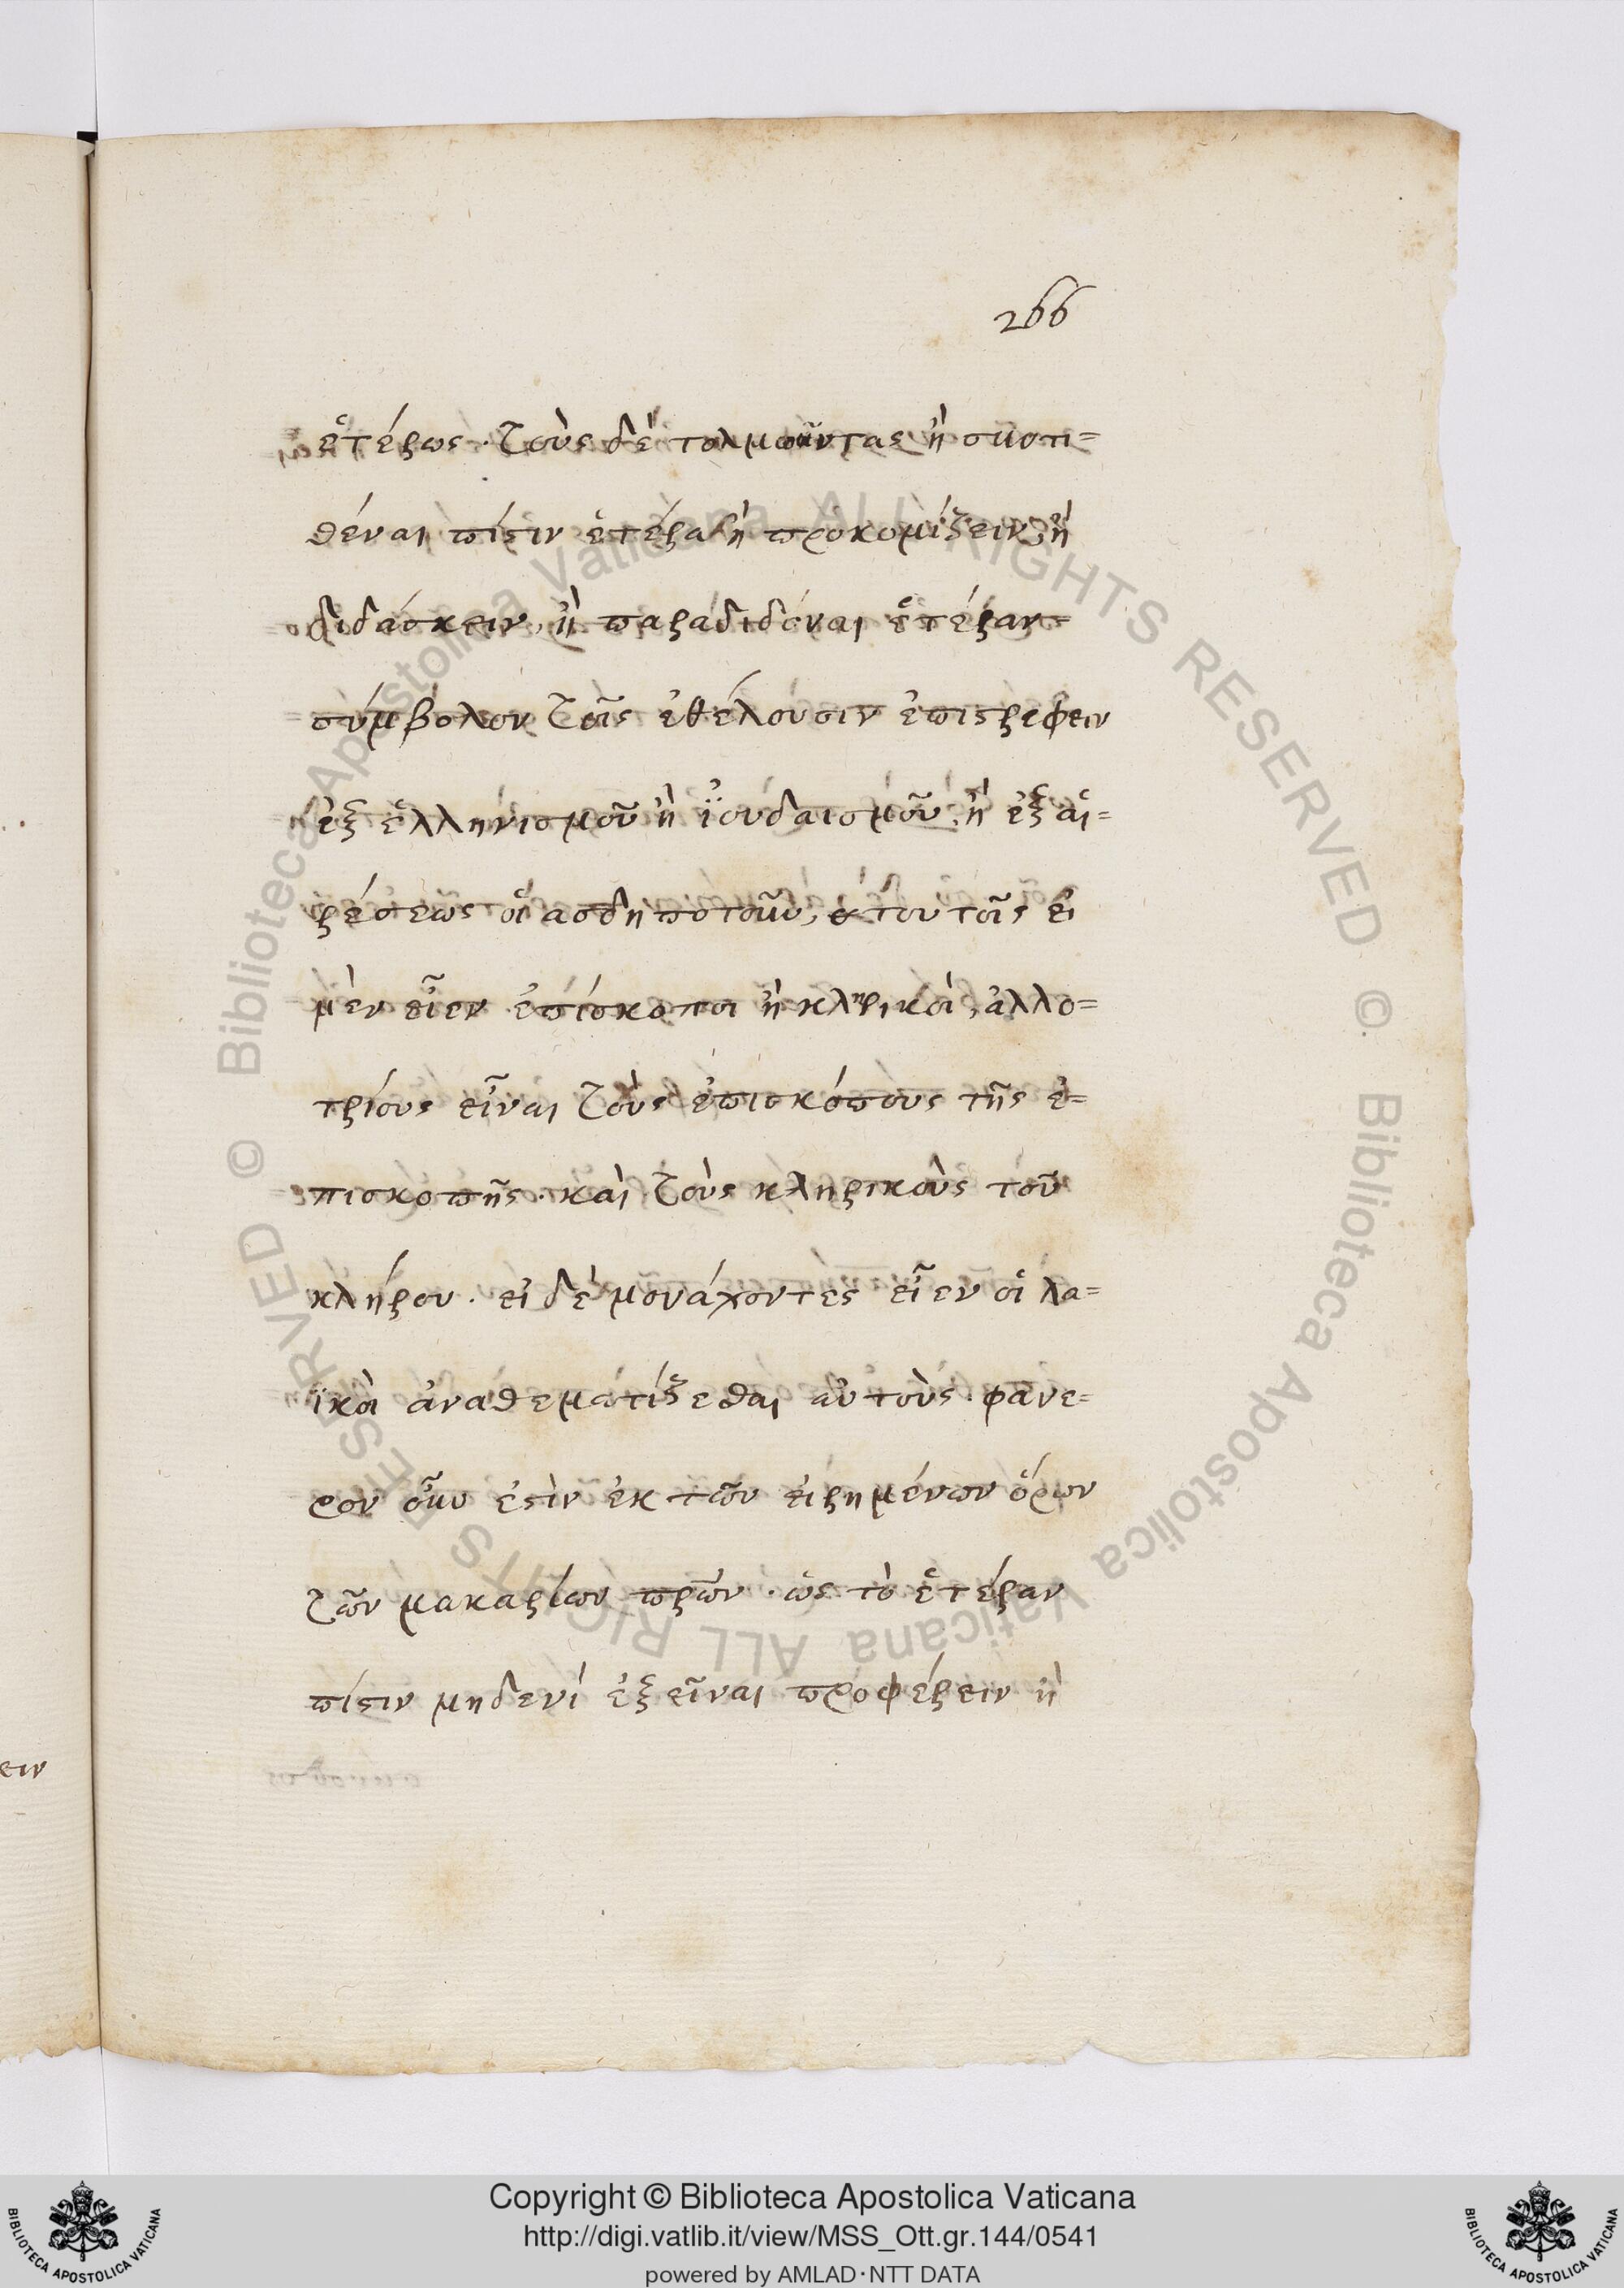 266
ἑτέρως. τοὺς δὲ τολμῶντας ἢ συντι=
θέναι πίστιν ἑτέραν ἢ προκομίζειν, ἢ
διδάσκειν, ἢ παραδιδόναι ἕτέραν
σύμβολον τοῖς ἐθέλουσιν ἐπιστρεφειν
ἐξ ἑλληνισμοῦ ἢ ἰουδαισμοῦ, ἢ ἐξ αἱ=
ρέσεως οἵασδηποτοῦν, τουτοῖς εἰ
μὲν εἶεν ἐπίσκοποι ἢ κληρικοὶ, ἀλλο=
τρίους εἶναι τοὺς ἐπισκόπους τῆς ἐ=
πισκοπῆς. καὶ τοὺς κληρικοὺς τοῦ
κλήρου. εἰ δὲ μονάχοντες εἶεν οἱ λα=
ϊκοὶ ἀναθεματίζεσθαι αὐτοὺς. φανε=
ρον οὖν ἐστὶν ἐκ τῶν εἰρημένων ὅρων
τῶν μακαρίων πρῶν. ὡς τὸ ἑτέραν
πίστιν μηδενὶ ἐξεῖναι προφέρειν ἢ
ειν
Copyright © Biblioteca Apostolica Vaticana
http://digi.vatlib.it/view/MSS_Ott.gr.144/0541
powered by AMLAD·NTT DATA
BIBLIOTECA APOSTOLICA VATICANA
BIBLIOTECA APOSTOLICA VATICANA
© Biblioteca Apostolica Vaticana ALL RIGHTS RESERVED © Biblioteca Apostolica Vaticana ALL RIGHTS RESERVED